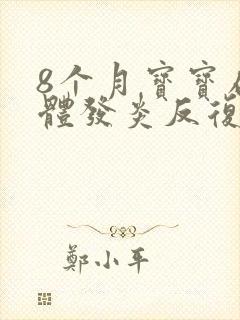 8个月寶寶
體發炎反復
鄭小平